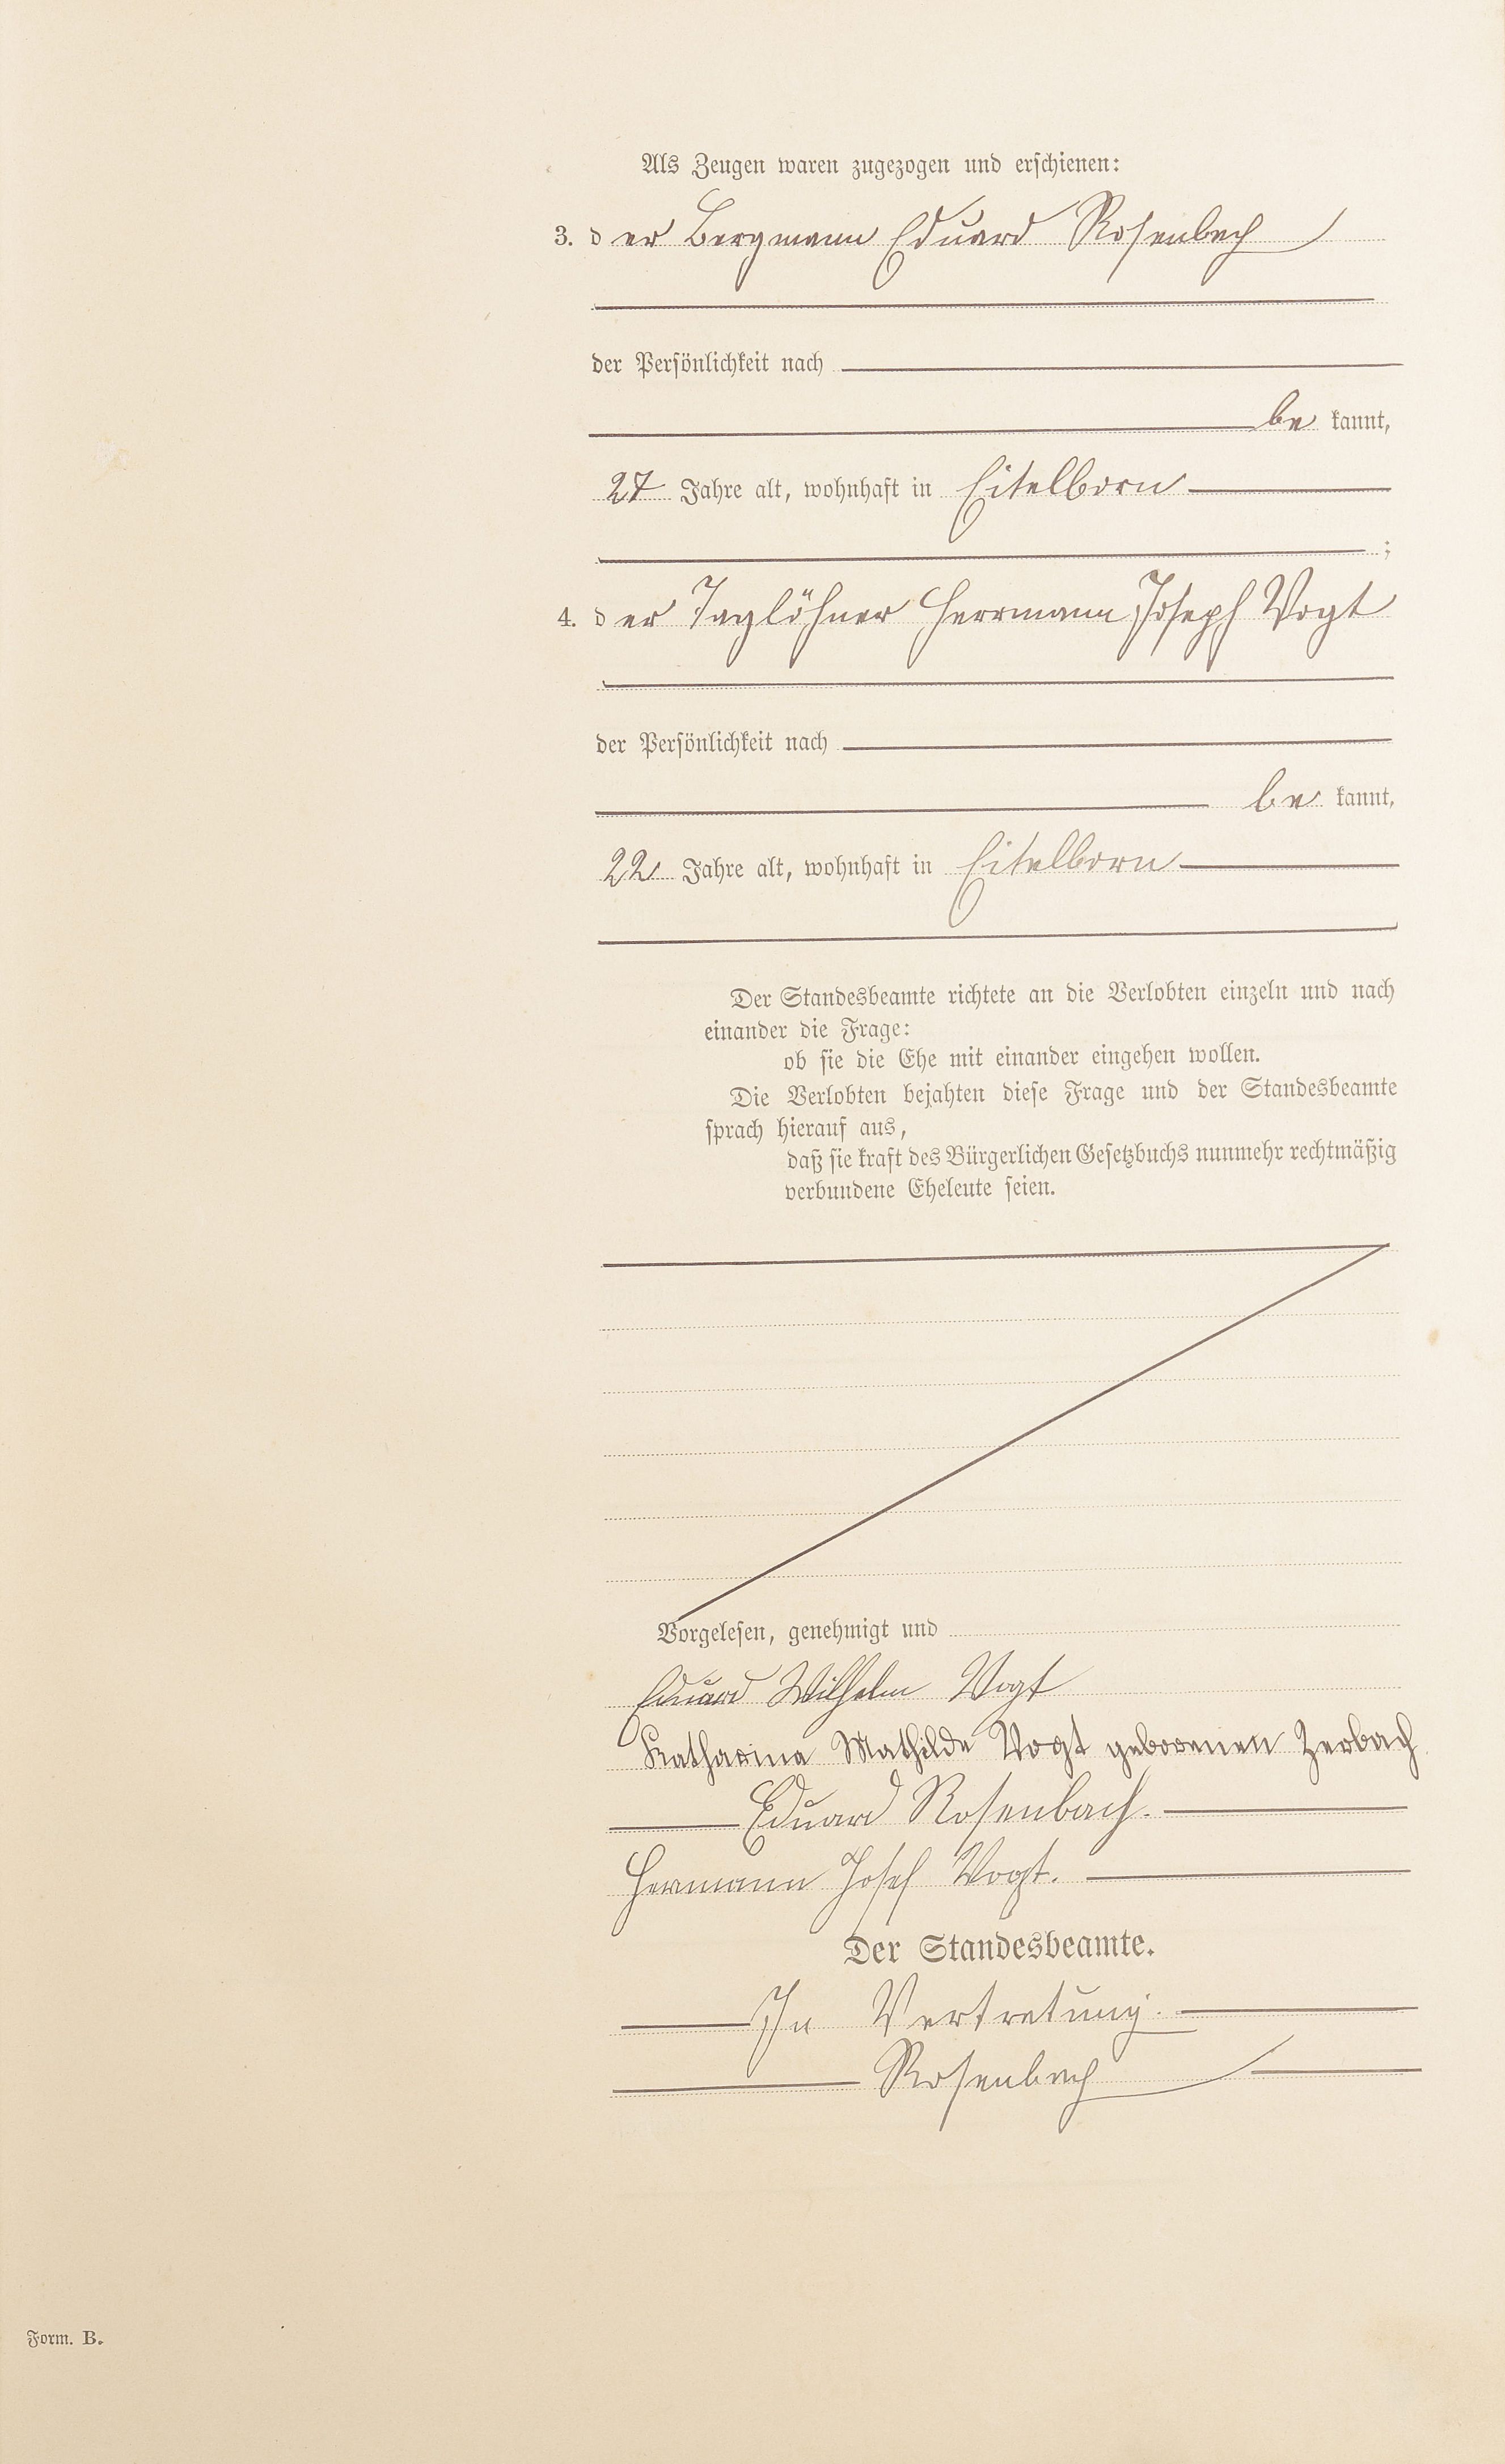 Als Zeugen waren zugezogen und erschienen:
3. der Bergmann Eduard Rosenbach
der Persönlichkeit nach
be kannt,
27 Jahre alt, wohnhaft in Eitelborn
;
4. der Taglöhner Herrmann Joseph Vogt
der Persönlichkeit nach
be kannt,
22 Jahre alt, wohnhaft in Eitelborn
Der Standesbeamte richtete an die Verlobten einzeln und nach
einander die Frage:
ob sie die Ehe mit einander eingehen wollen.
Die Verlobten bejahten diese Frage und der Standesbeamte
sprach hierauf aus,
daß sie kraft des Bürgerlichen Gesetzbuchs nunmehr rechtmäßig
verbundene Eheleute seien.
Vorgelesen, genehmigt und
Eduard Wilhelm Vogt
Katharina Mathilde Vogt geborenen Zerbach
Eduard Rosenbach.
Hermann Josef Vogt.
Der Standesbeamte.
In Vertretung.
Rosenbach
Form. B.